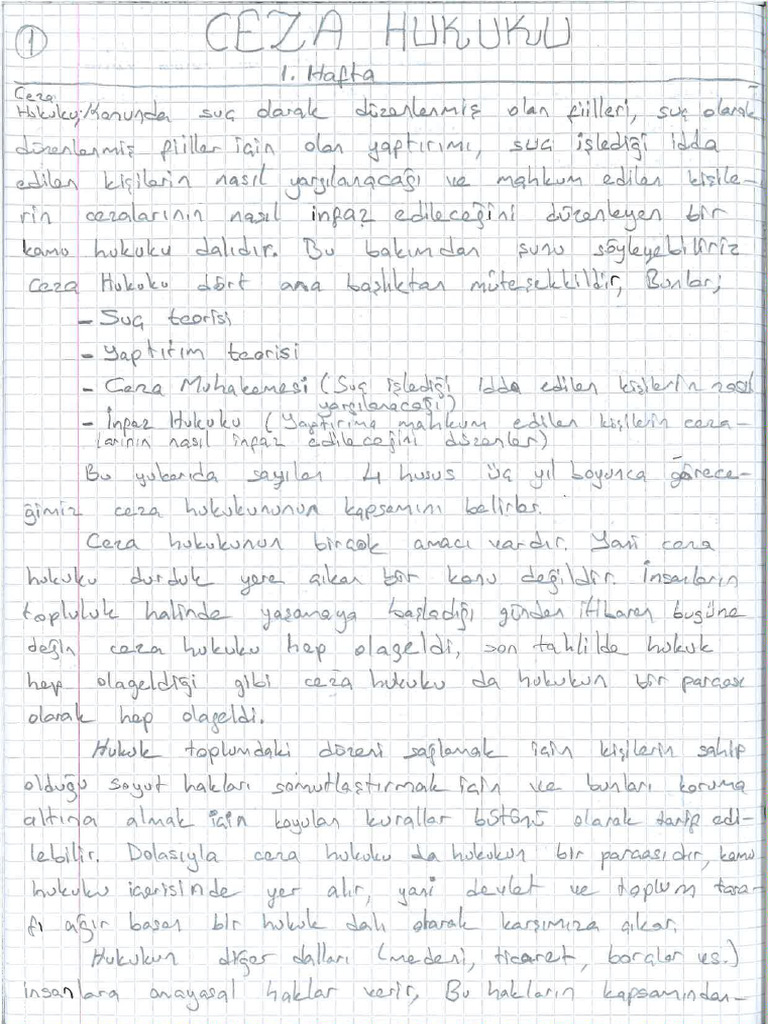 1
CEZA HUKUKU
1. Hafta
Ceza
Hukuku; Kanunda suç olarak düzenlenmiş olan fiilleri, suç olarak
düzenlenmiş fiiller için olan yaptırımı, suç işlediği idda
edilen kişilerin nasıl yargılanacağı ve mahkum edilen kişile-
rin cezalarının nasıl infaz edileceğini düzenleyen bir
kamu hukuku dalıdır. Bu bakımdan şunu söyleyebiliriz
Ceza Hukuku dört ana başlıktan müteşekkildir, Bunlar;
- Suç teorisi
- Yaptırım teorisi
- Ceza Muhakemesi (Suç işlediği idda edilen kişilerin nasıl
yargılanacağı)
- İnfaz Hukuku (Yaptırıma mahkum edilen kişilerin ceza-
larının nasıl infaz edileceğini düzenler)
Bu yukarıda sayılan 4 husus üç yıl boyunca görece-
ğimiz ceza hukukununun kapsamını belirler.
Ceza hukukunun birçok amacı vardır. Yani ceza
hukuku durduk yere çıkan bir konu değildir. İnsanların
topluluk halinde yaşamaya başladığı günden itibaren bugüne
değin ceza hukuku hep olageldi, son tahlilde hukuk
hep olageldiği gibi ceza hukuku da hukukun bir parçası
olarak hep olageldi.
Hukuk toplumdaki düzeni sağlamak için kişilerin sahip
olduğu soyut hakları somutlaştırmak için ve bunları koruma
altına almak için koyulan kurallar bütünü olarak tarif edi-
lebilir. Dolasıyla ceza hukuku da hukukun bir parçasıdır, kamu
hukuku içerisinde yer alır, yani devlet ve toplum tara-
fı ağır basan bir hukuk dalı olarak karşımıza çıkar.
Hukukun diğer dalları (medeni, ticaret, borçlar vs.)
insanlara anayasal haklar verir, Bu hakların kapsamından-